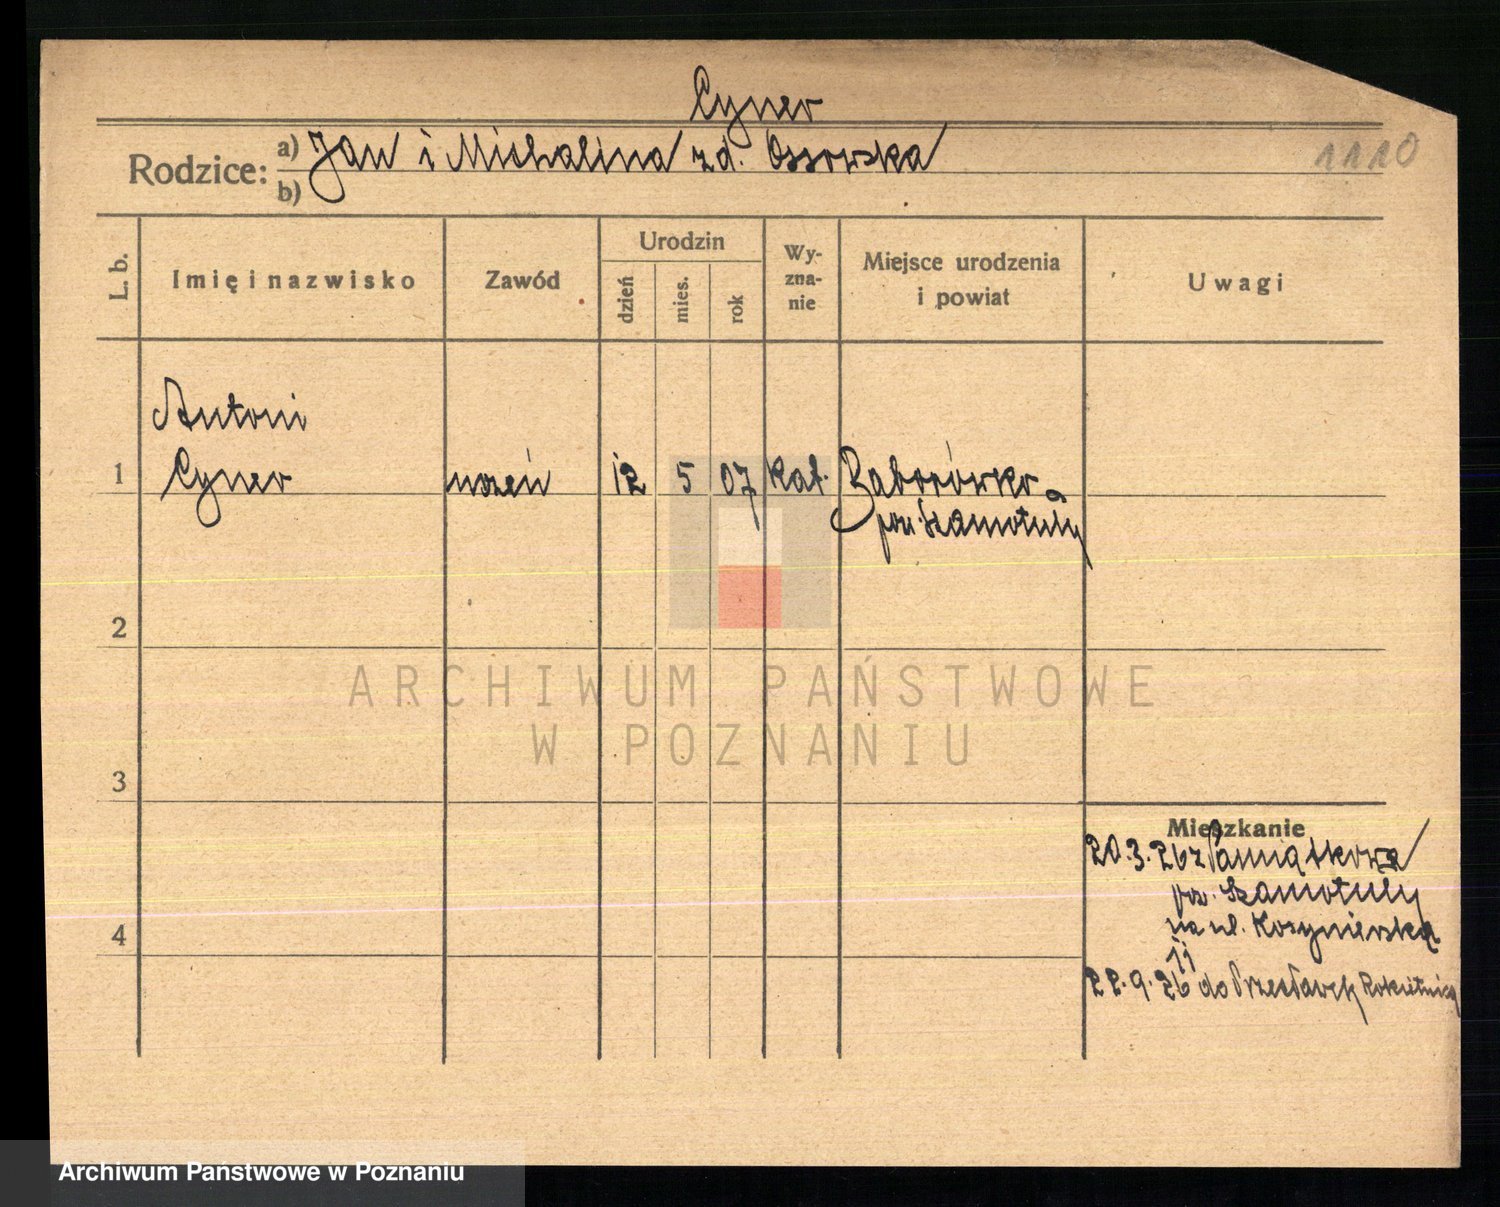 Cyner
1110
Rodzice: a) Jan i Michalina zd. Ossowska
b)
L. b.
Imię i nazwisko
Zawód
Urodzin
dzień
mies.
rok
Wy-
zna-
nie
Miejsce urodzenia
i powiat
Uwagi
Antoni
1 Cyner uczeń 12 5 07 kat. Zaborówko
pow. Szamotuły
2
ARCHIWUM PAŃSTWOWE
W POZNANIU
3
Mieszkanie
20.3.26 z Pamiątkowa
pow. Szamotuły
4
na ul. Kosynierską
11
22.9.26 do Przecławek Rokietnica
Archiwum Państwowe w Poznaniu